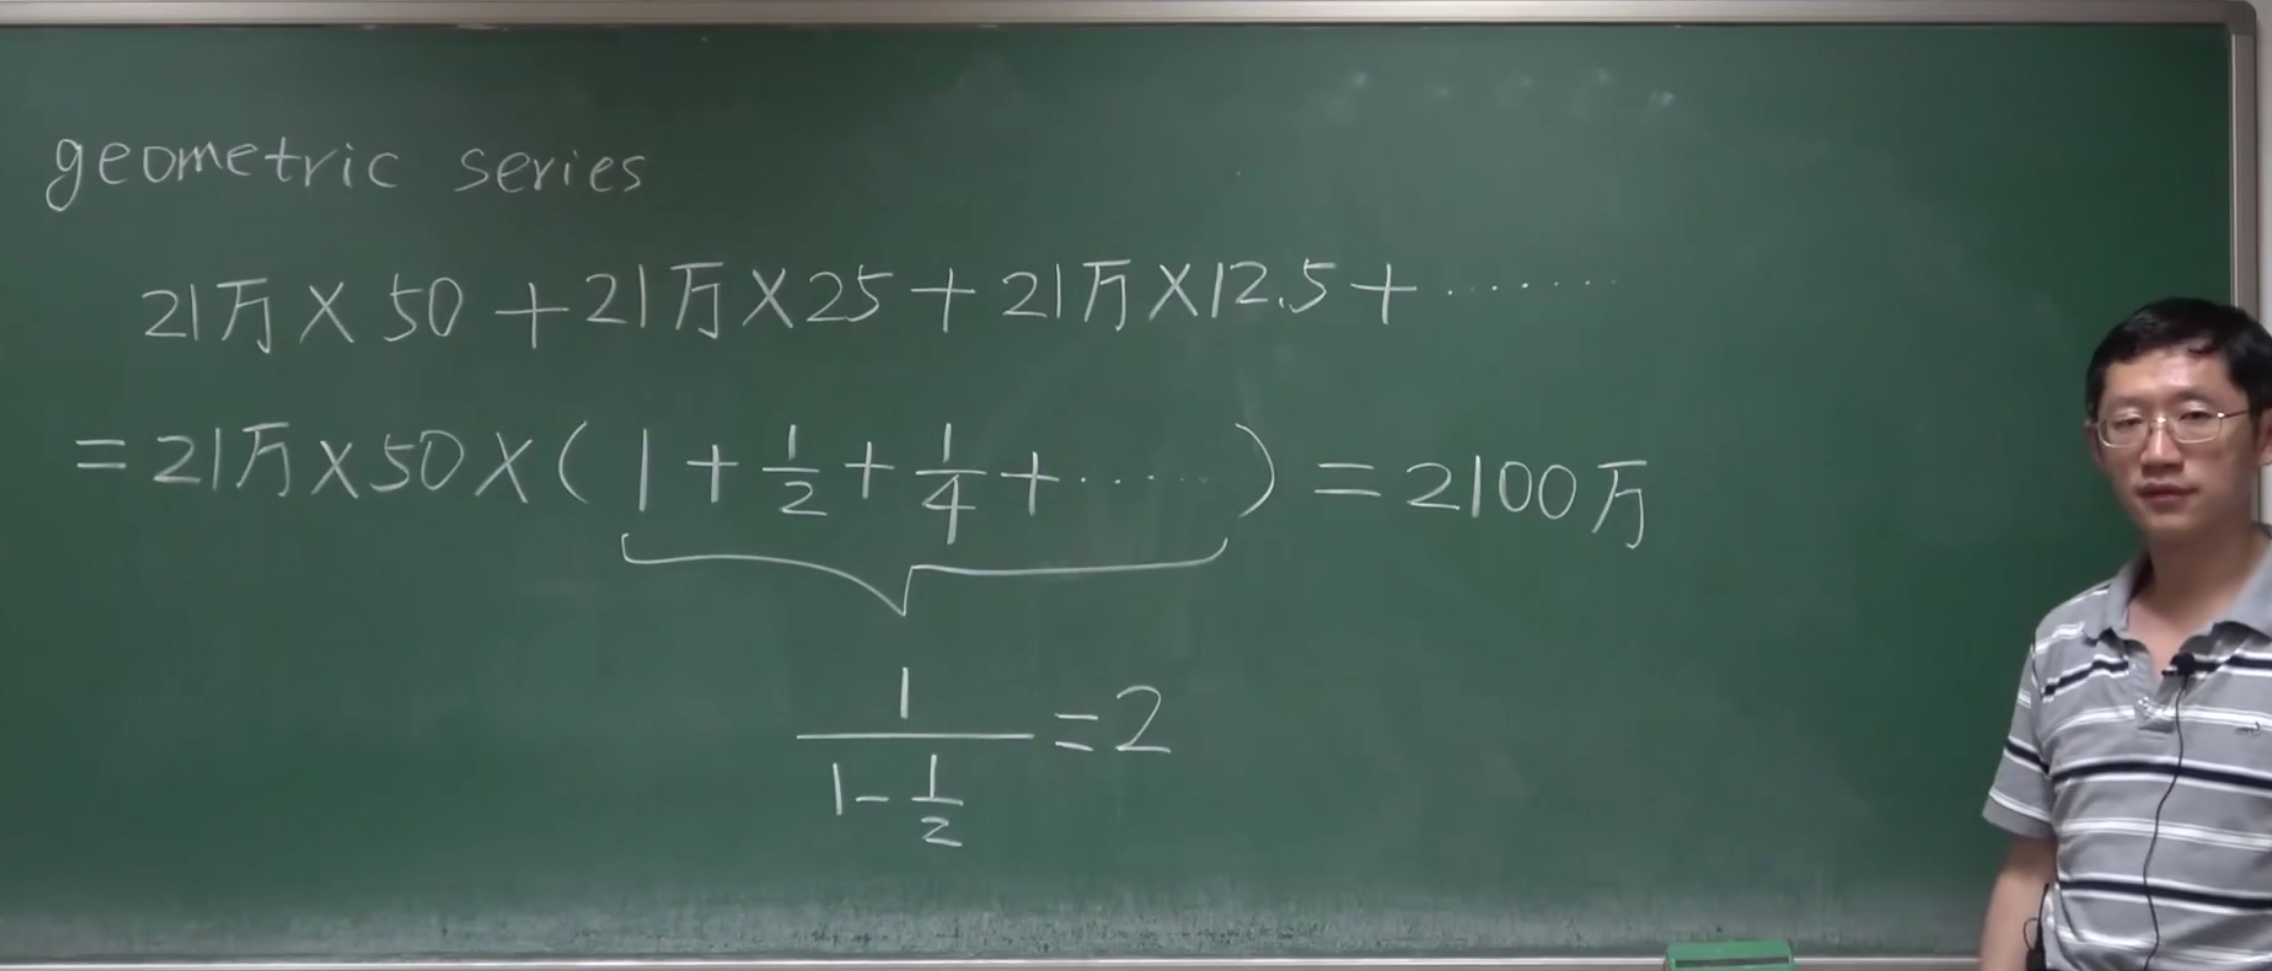 geometric series
21万×50+21万×25+21万×12.5+·······
=21万×50×(1+1/2+1/4+······)=2100万
1/(1-1/2)=2